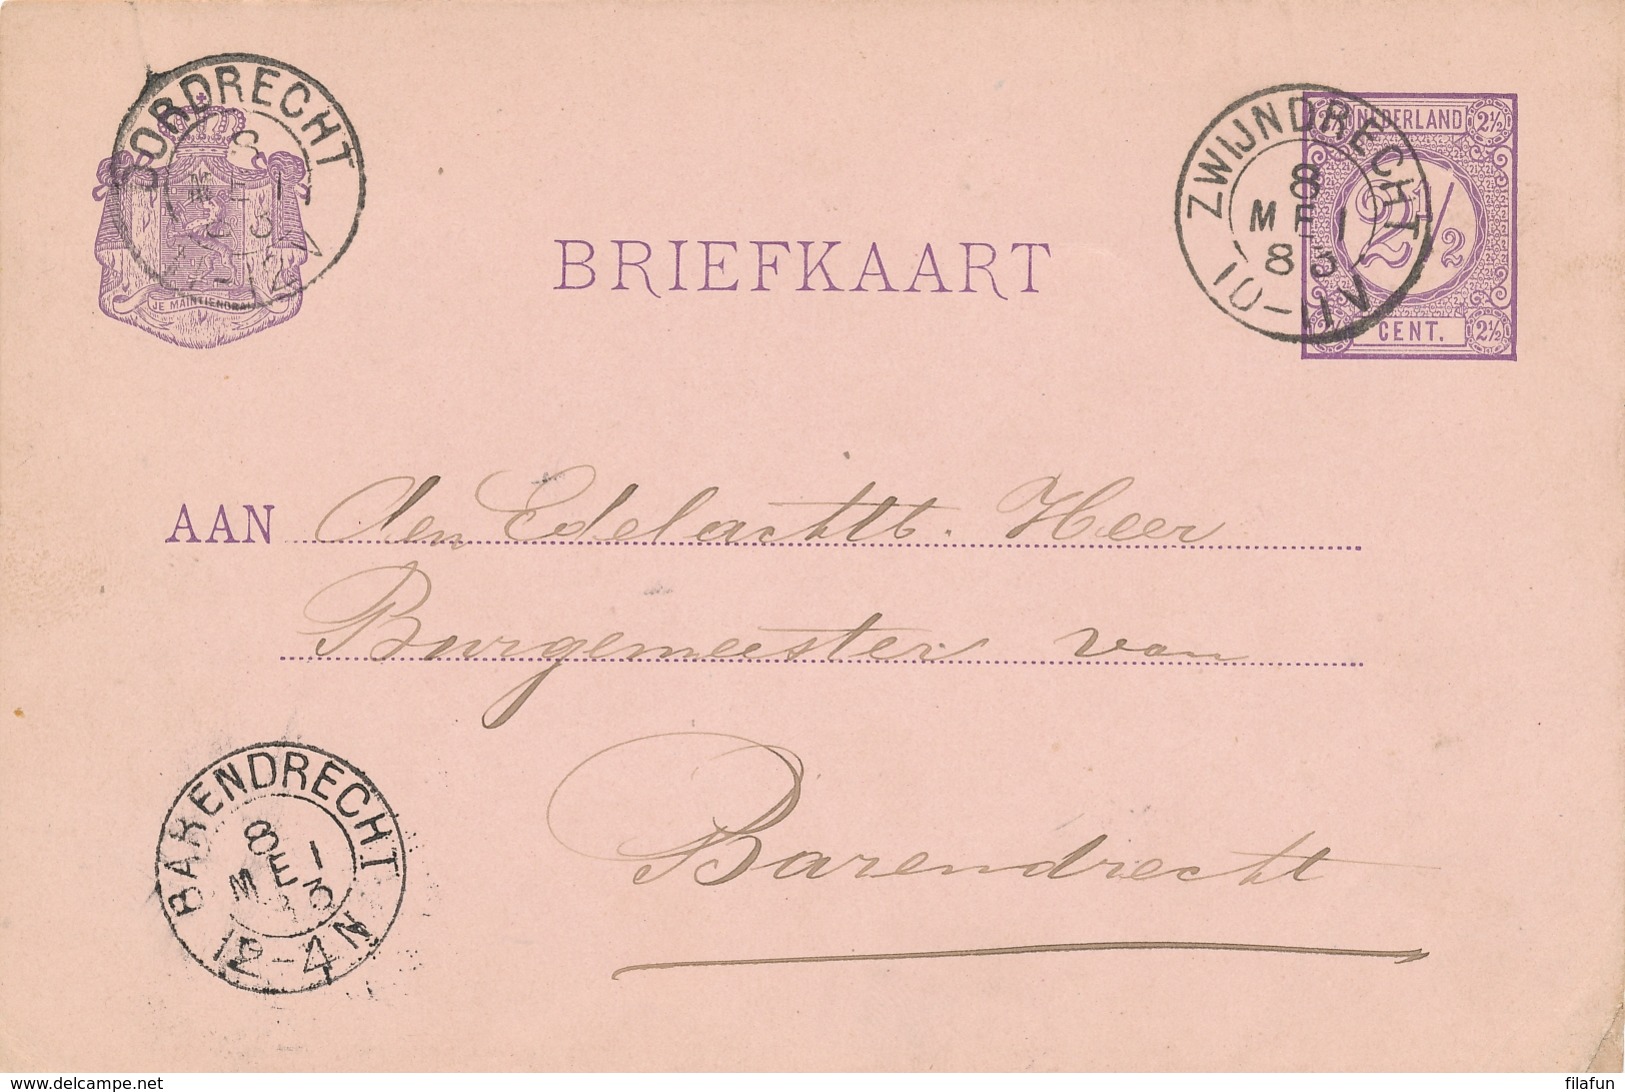 DORDRECHT
8
MEI
83
JE MAINTIENDRAI
BRIEFKAART
ZWIJNDRECHT
8
MEI
83
10-11V
NEDERLAND
2½
2½
CENT.
2½
AAN den Edelachtb. Heer
Burgemeester van
Barendrecht
BARENDRECHT
8
MEI
83
12-4N
delcampe.net
filafun